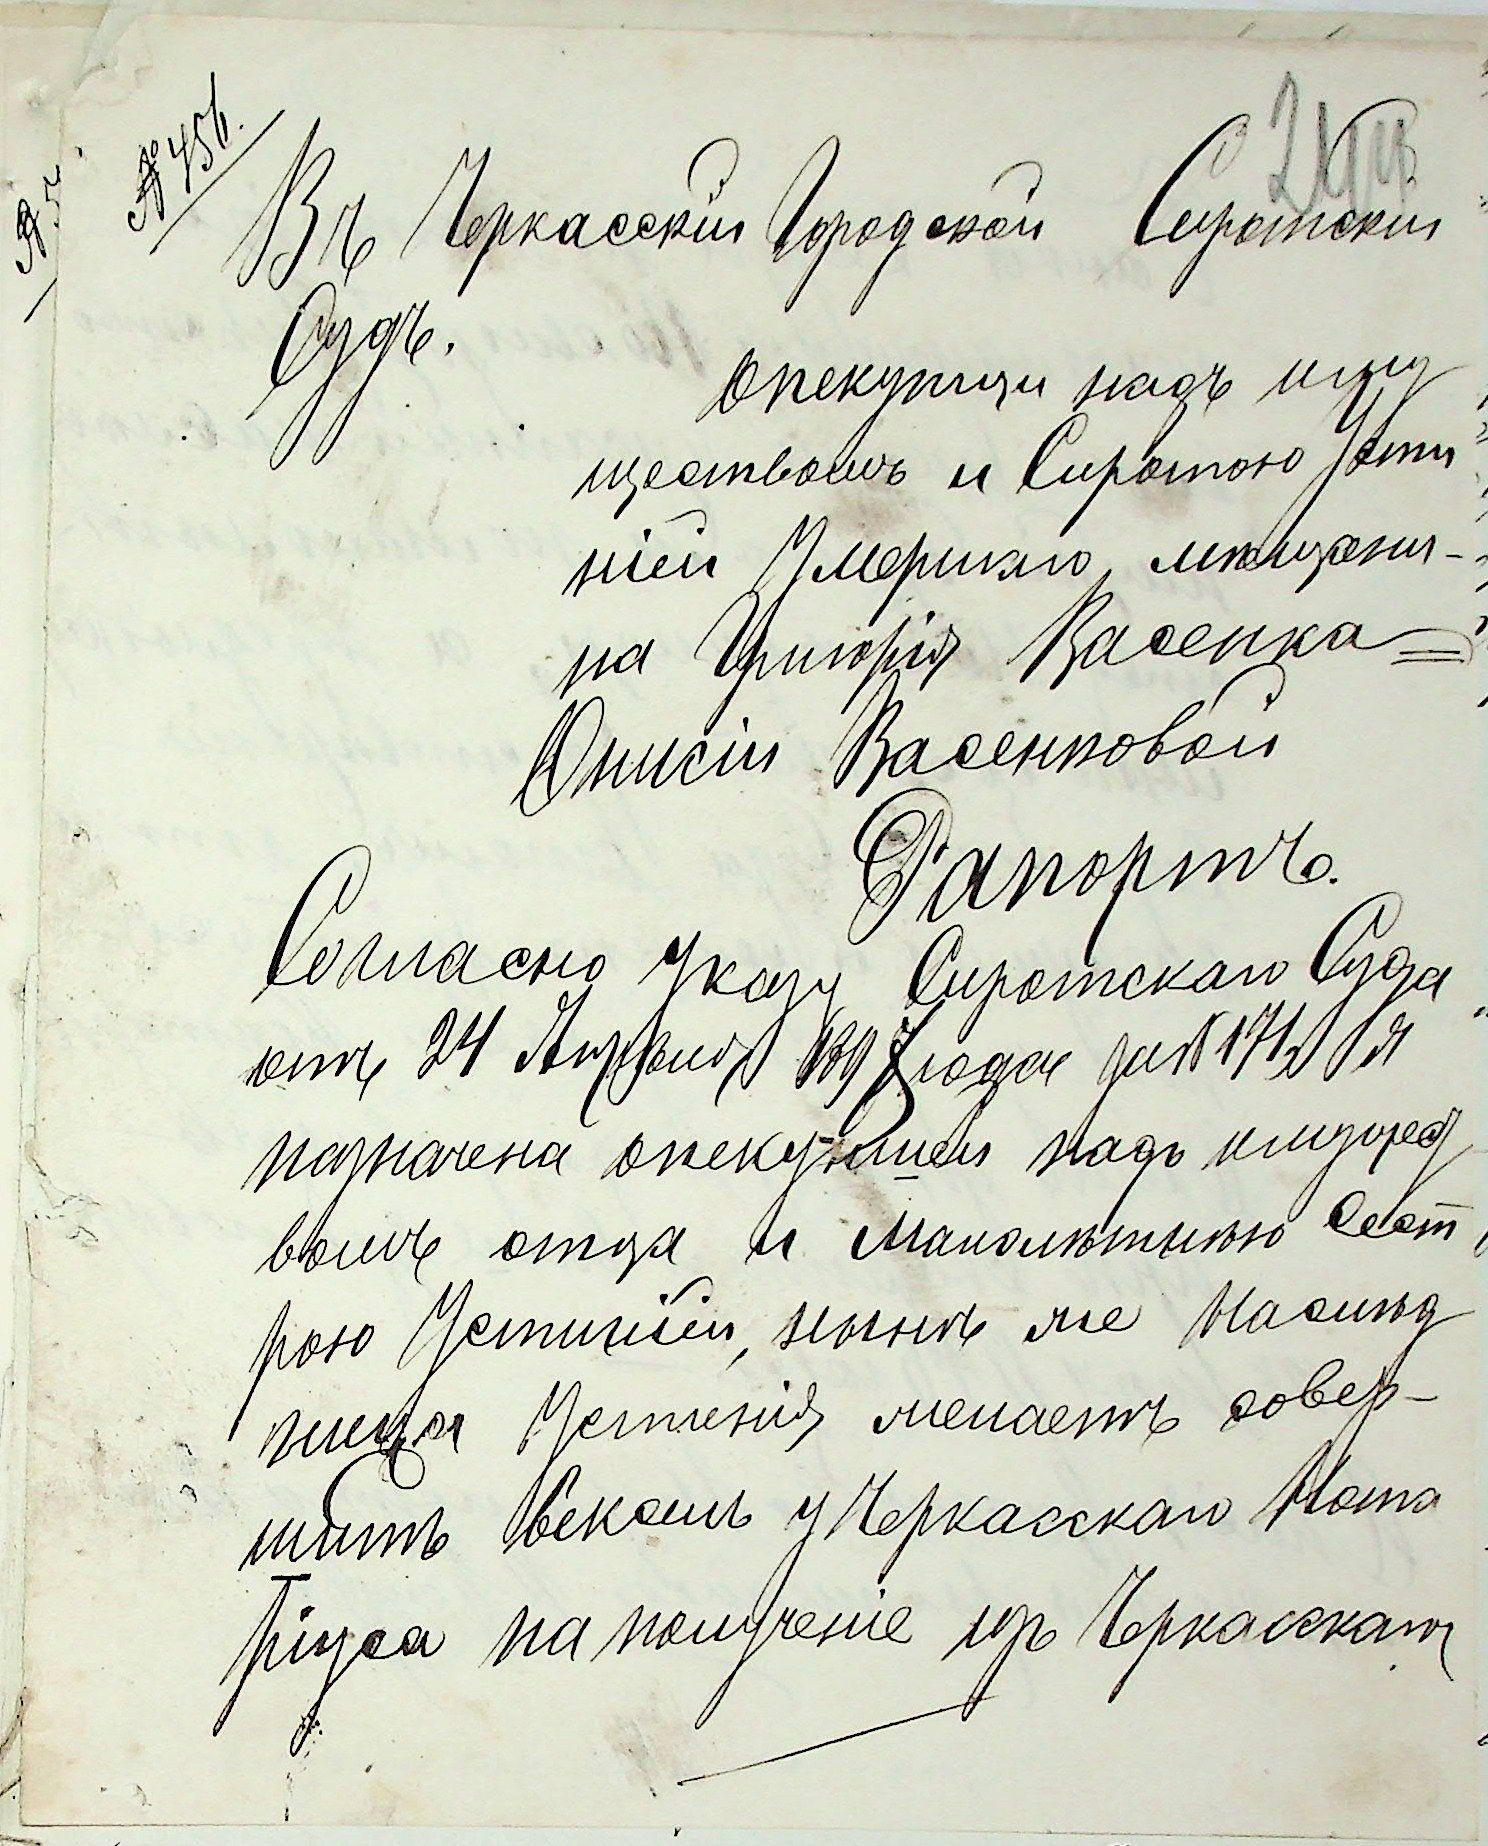 № 456.
Въ Черкасскій Городской Сиротскій
Судъ.
Опекунши надъ иму
ществомъ и Сиротою Усти
ніей Умершаго мѣщани-
на Григорія Васенка
Онисіи Васенковой
Рапортъ.
Согласно Указу Сиротскаго Суда
отъ 24 Апрѣля 1897 года за № 171 Я
назначена опекуншей надъ имущест
вомъ отца и Малолѣтнею Сест
рою Устиніей, нынѣ же Наслѣд
ница Устенія желаетъ совер-
шить вексель у Черкасскаго Нота
ріуса на полученіе изъ Черкасскаго